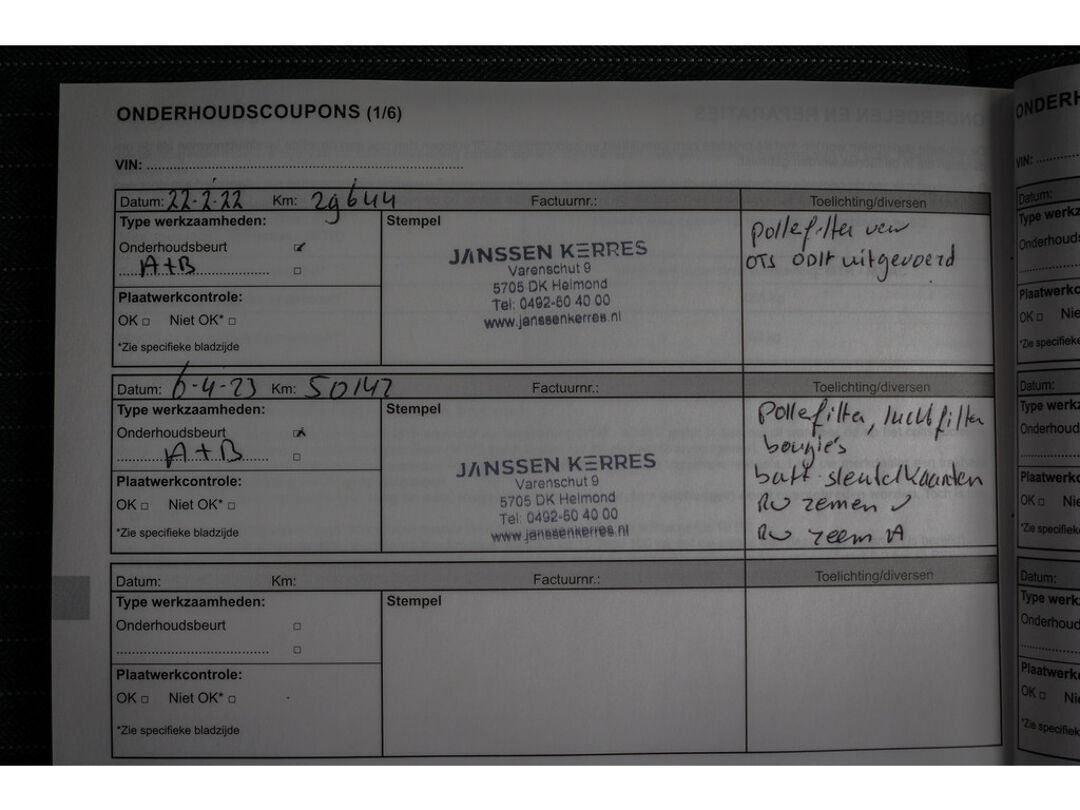 ONDERHOUDSCOUPONS (1/6)
VIN:
Datum: 22-2-22 Km: 29644 Factuurnr.: Toelichting/diversen
Type werkzaamheden:
Onderhoudsbeurt
A+B
Plaatwerkcontrole:
OK □ Niet OK* □
*Zie specifieke bladzijde
Stempel
JANSSEN KERRES
Varenschut 9
5705 DK Helmond
Tel: 0492-50 40 00
www.janssenkerres.nl
pollefilter verv
OTS 0DLT uitgevoerd
Datum: 6-4-23 Km: 50142 Factuurnr.: Toelichting/diversen
Type werkzaamheden:
Onderhoudsbeurt
A+B
Plaatwerkcontrole:
OK □ Niet OK* □
*Zie specifieke bladzijde
Stempel
JANSSEN KERRES
Varenschut 9
5705 DK Helmond
Tel: 0492-50 40 00
www.janssenkerres.nl
pollefilter, luchtfilter
bougie's
batt. sleutelkaarten
RW remen V
RW reem A
Datum: Km: Factuurnr.: Toelichting/diversen
Type werkzaamheden:
Onderhoudsbeurt
Plaatwerkcontrole:
OK □ Niet OK* □
*Zie specifieke bladzijde
Stempel
ONDERH
VIN:
Datum:
Type werkz
Onderhouds
Plaatwerkc
OK □ Nie
*Zie specifieke
Datum:
Type werkz
Onderhoud
Plaatwerkc
OK □ Nie
*Zie specifieke
Datum:
Type werk
Onderhoud
Plaatwerk
OK □ Ni
*Zie specifiek